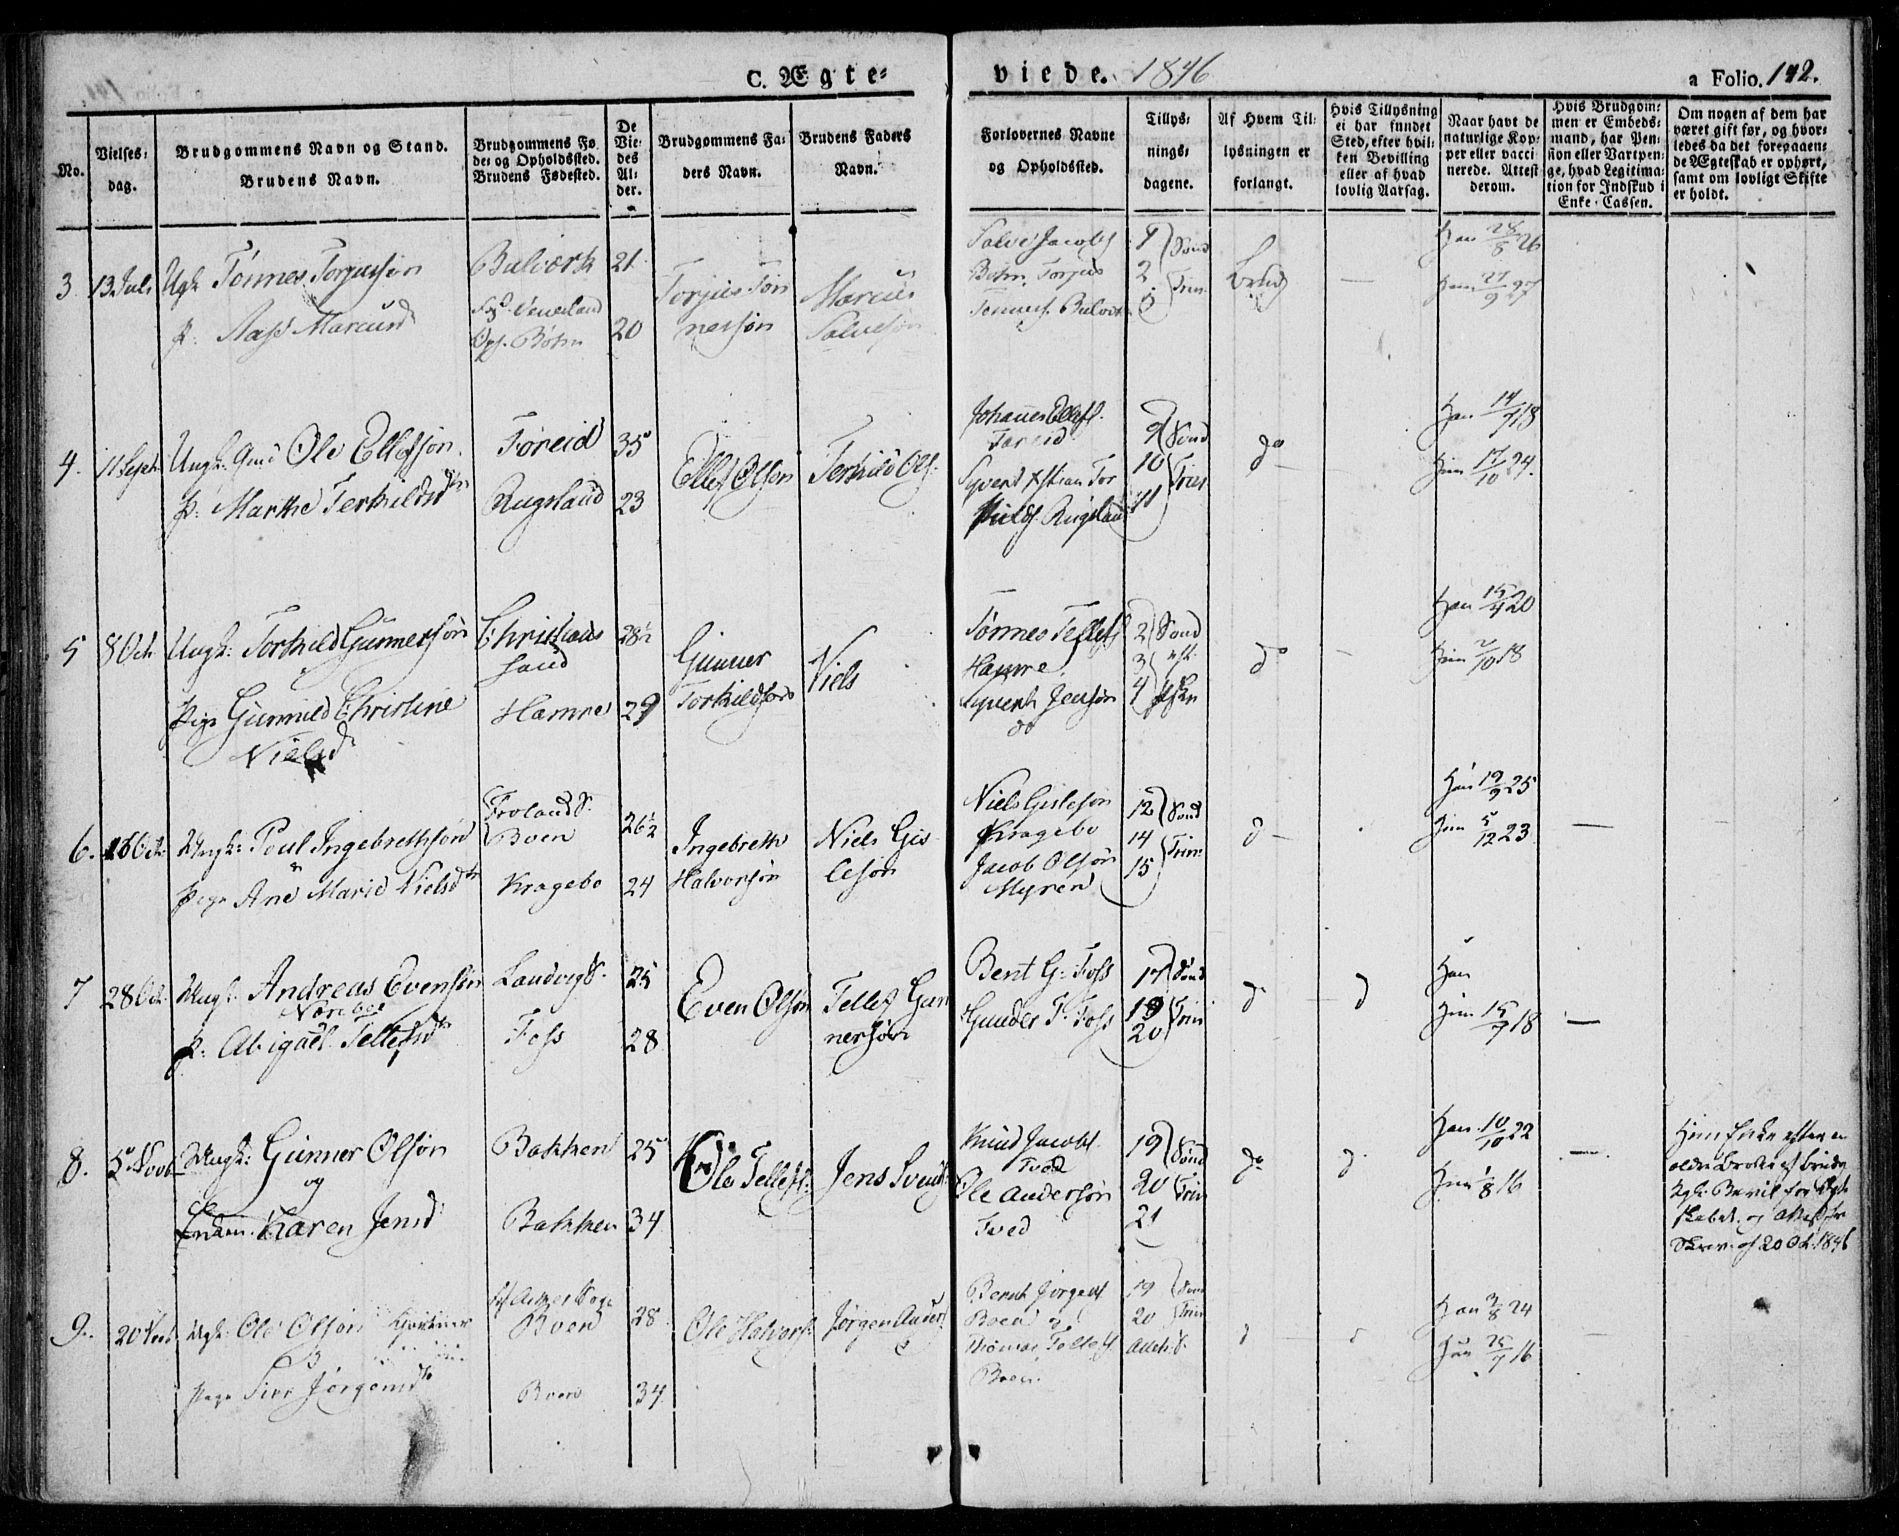 C. Ægte-
viede. 1846
a Folio. 142.
No.
Vielses-
dag.
Brudgommens Navn og Stand.
Brudens Navn.
Brudgommens Fø
de- og Opholdssted.
Brudens Fødested.
De
Vie-
des
Al-
der.
Brudgommens Fa-
ders Navn.
Brudens Faders
Navn.
Forlovernes Navne
og Opholdssted.
Tillys-
nings-
dagene.
Af Hvem Til-
lysningen er
forlangt.
Hvis Tillysning
ei har fundet
Sted, efter hvil-
ken Bevilling
eller af hvad
lovlig Aarsag.
Naar havt de
naturlige Kop-
per eller vacci-
nerede. Attest
derom.
Hvis Brudgom-
men er Embeds-
mand, har Pen-
sion eller Vartpen-
ge, hvad Legitima-
tion for Indskud i
Enke-Cassen.
Om nogen af dem har
været gift før, og hvor-
ledes da det forepaaen-
de Ægteskab er ophørt,
samt om lovligt Skifte
er holdt.
3 13 Juli Ugk Tønnes Torjussøn
P. Aase Marcusd
Bulverk 21
20
Torjus Tøn
nessøn
Marcus
Salvesøn
Salve Jacobs
Torjus
Tønness. Bulverk
1 Sønd
2 Trin
3
Brudg
Han 28/8 26
Hun 27/9 27
4. 11 Sept Ungk: Gmd Ole Ellefsøn
P: Marthe Terkildsdtr
Føreid 35
Rugsland 23
Ellef Olsøn
Terkild Ols.
Johannes Ellefs.
Føreid
Syvert
Rugsland
9 Sønd
10 Trin
11
do
Han 14/7 18
Hun 17/10 24.
5 8 Oct Ungk: Torkild Gunnersøn
Pige Gunnild Christine
Nielsd
Christians
sand 28½
Hamre 29
Gunner
Torkildsøn
Niels
Tønnes Tellefs
Hamre
Syvert Jensøn
do
2 Sønd
3
4
do
Han 15/4 20
Hun 2/10 18
6. 16 Oct Ungk: Poul Ingebrethsøn
Pige Ane Marie Nielsdtr
Frolands S.
Boen 26½
Kragebo 24
Ingebreth
Halvorsøn
Niels Gis
lesøn
Niels Gislesøn
Kragebo
Jacob Olsøn
Myren
12 Sønd
14 Trin
15
d
Han 19/9 25
Hun 5/12 23
7 28 Oct Ungk: Andreas Evensøn
P: Abigael Tellefsdtr
Landvig S. 25
Foss 28
Even Olsøn
Tellef Gun
nersøn
Bent G: Foss
Gunder T. Foss
17 Sønd
19 Trin
20
d d
Han
Hun 15/7 18
8. 5 Novb Ungk: Gunner Olsøn
og
Enken Karen Jensd
Bakken 25
Bakken 34
Ole Tellefs.
Jens Svends
Knud Jacobs.
Tved
Ole Andersøn
Tved
19 Sønd
20 Trin
21
do d
Han 10/10 22
Hun 1/8 16
Hun Enke efter en
ældre Broder af Brudg
Kgl: Bevil. for Ægte
skabet og Attest for
Skrev. af 20 Oct. 1846
9. 20 Nov Ugk: Ole Olsøn
Pige Siri Jørgensdtr
Boen 28
Boen 34
Ole Halvors.
Jørgen Anders.
Bernt Jørgens
Boen
Thomas Tellefs
Boen
19 Sønd
20 Trin
Advt: S.
d d
Han 3/8 24
Hun 25/7 16